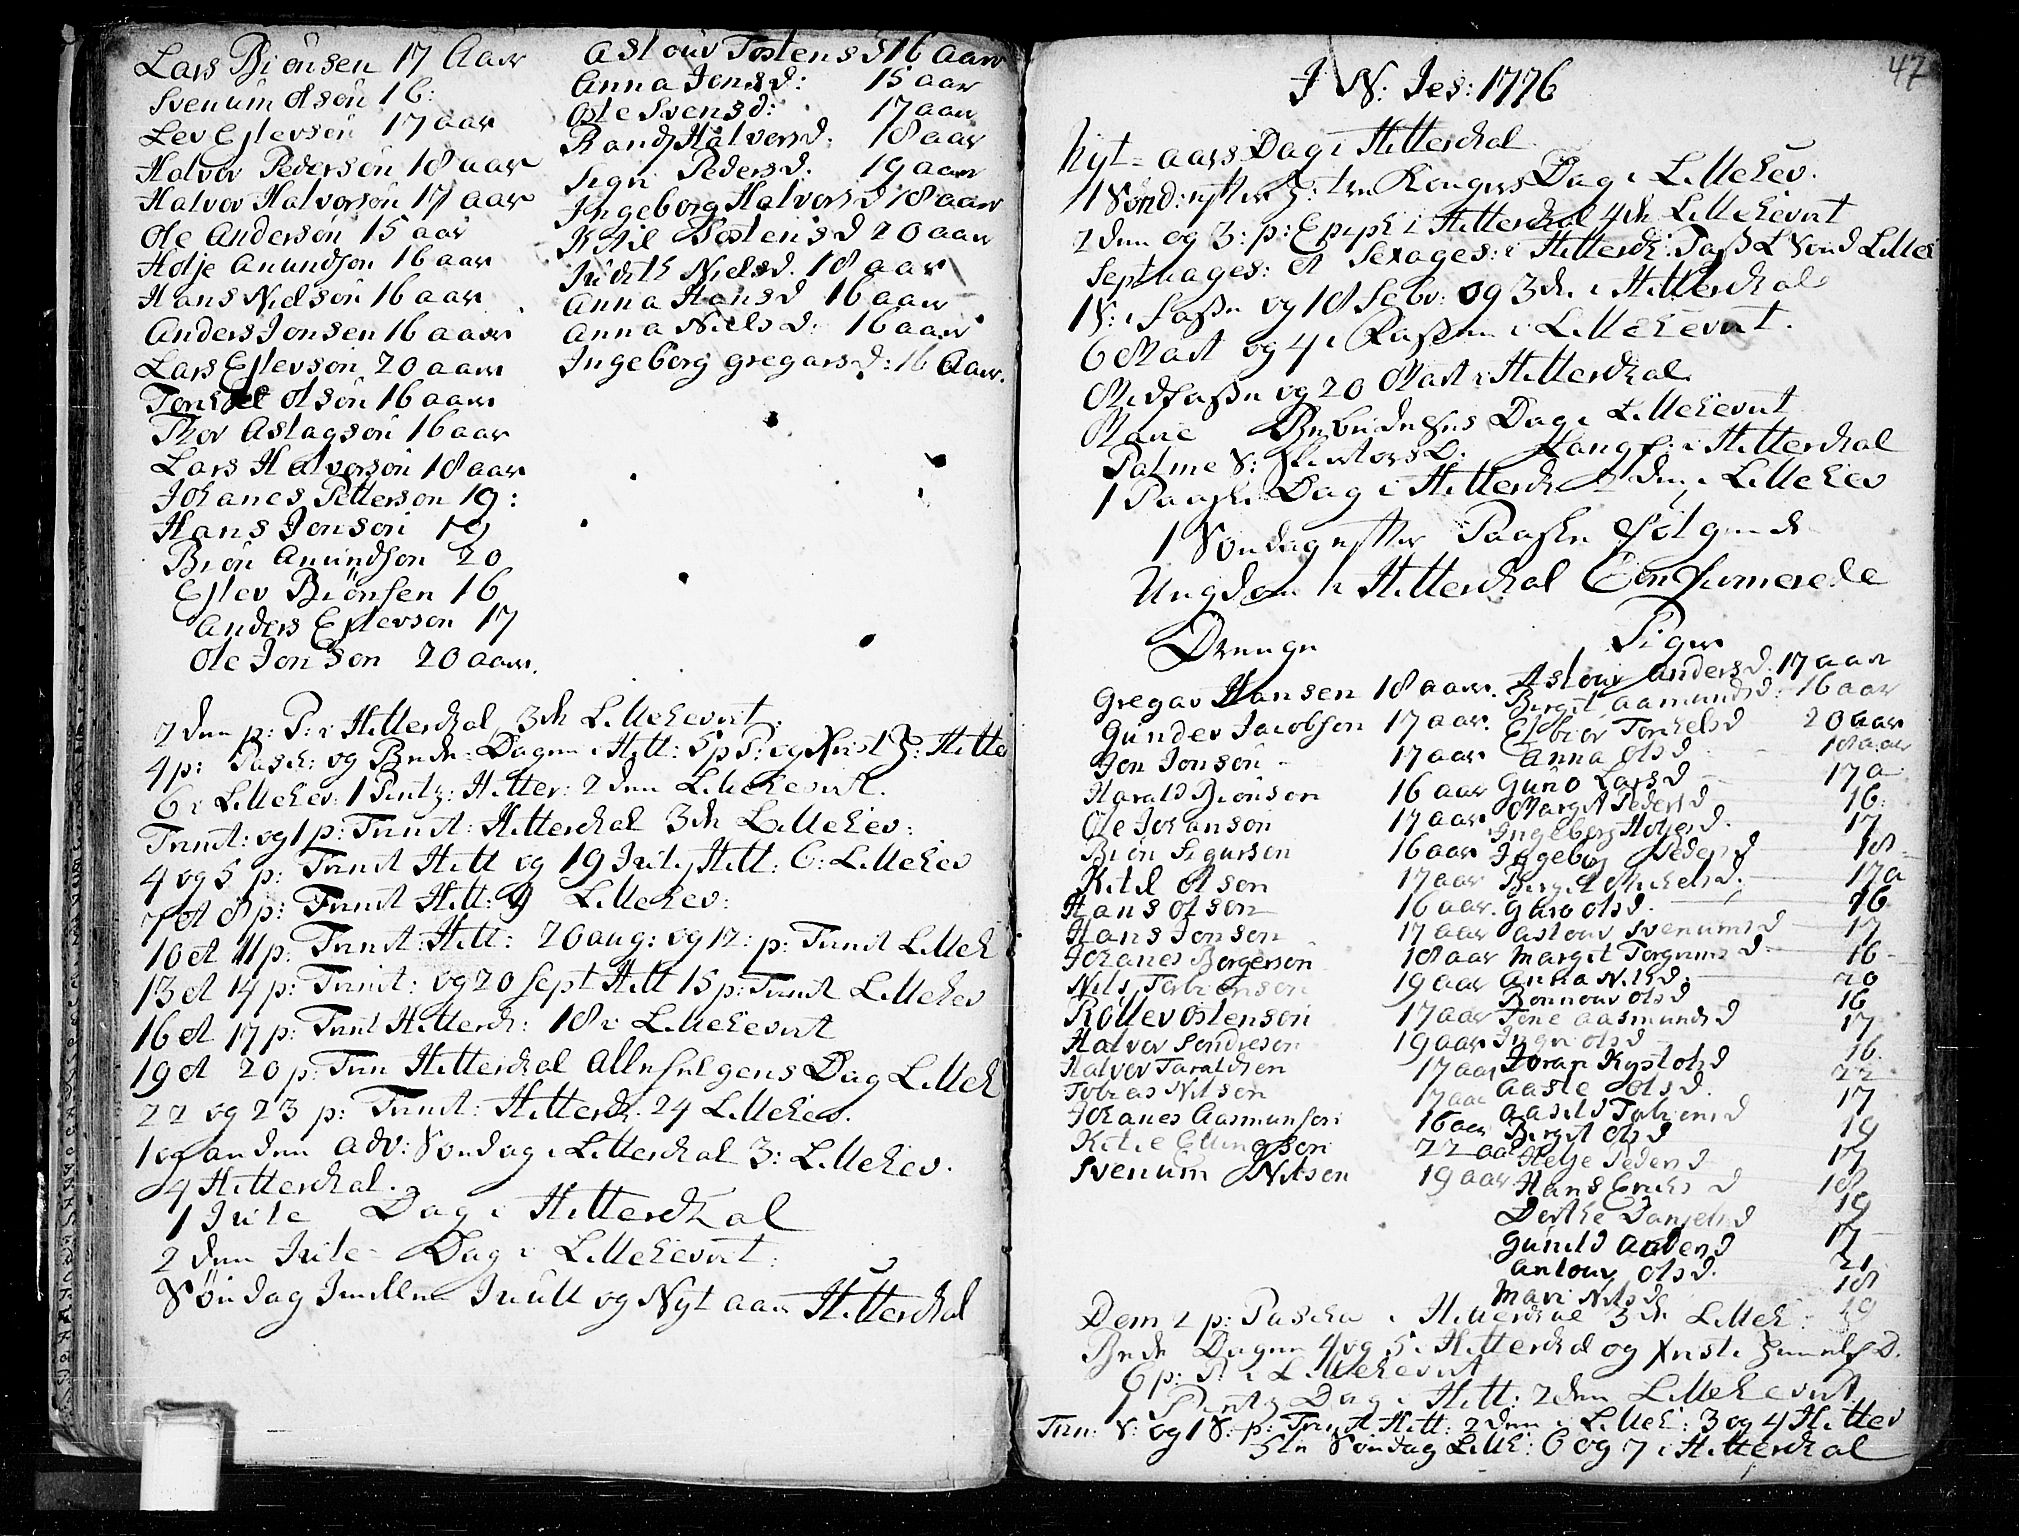 Lars Biönsen 17 Aar
Svenum olsön 16:
Lev Eslevsön 17 aar
Halvor Pedersön 18 aar
Halvor Halvorsön 17 aar
Ole Andersön 15 aar
Holje Anundson 16 aar
Hans Nielsön 16 aar
Anders Jonsen 16 aar
Lars Eslevsön 20 aar
Torkel olsön 16 aar
Thor Aslagsön 16 aar
Lars Halvorsön 18 aar
Johanes Petterson 19:
Hans Jonsön 19
Biön Anundson 20
Eslev Biönsen 16
Anders Eslevson 17
Ole Jonson 20 aar.
Aslouv Tostensd 16 aar
Anna Jonsd: 15 aar
Osle Svensd: 17 aar
Randj Halvorsd. 18 aar
Sigri Pedersd. 19 aar
Ingeborg Halvorsd 18 aar
Ketil Tostensd 20 aar
Judith Nielsd. 18 aar
Anna Hansd 16 aar
Anna Nielsd: 16 aar
Ingeborg gregarsd: 16 Aar.
2den p: P: i Hitterdal 3de Lillehervet.
4 p: Pasch: og Bede-Dagen i Hitt: 5 p P: og Xrist H: Hitte
6 i Lillehev: 1 Pintz: Hitter: 2den Lillehevert.
Trinit: og 1 p: Trinit: Hitterdal 3de Lillehev:
4 og 5 p: Trinit Hitt og 19 Julij Hitt: 6: Lillehev
7 et 8 p: Trinit Hitt: 9 Lillehev:
10 et 11 p: Trinit: Hitt: 20 aug: og 12: p: Trinit Lilleh
13 et 14 p: Trinit: og 20 Sept Hitt 15 p: Trinit Lillehev
16 et 17 p: Trinit Hitterd: 18 i Lillehevert
19 et 20 p: Trin Hitterdal Allehelgens Dag Lilleh
22 og 23 p: Trinit: Hitterd. 24 Lillehev.
1 og anden adv: Söndag i Hitterdal 3: Lillehev.
4 Hitterdal.
1 Jule Dag i Hitterdal
2den Jule-Dag i Lillehevert:
Söndag Imellem Juul og Nyt aar Hitterdal
47
J N: Jes: 1776
Nyt-aars Dag i Hitterdal
1 Sönd: efter H: tre Kongers Dag i Lillehev.
2den og 3: p: Epiph i Hitterdal 4de Lillehevert
Septuages: et Sexages: i Hitterd: Fast Sönd Lilleh
1 S: i Faste og 18 Febr: og 3de i Hitterdal
6 Mart og 4 i Fasten i Lillehevert.
Midfaste og 20 Mart i Hitterdal
Marie Bebudelses Dag i Lillehevert
Palme S: Skiertorsd: Langf: i Hitterdal
1 Paaske Dag i Hitterd 2den i Lillehev
1 Söndag efter Paaske fölgende
Ungdom i Hitterdal Confirmerede
Drenge
Gregar Hansen 18 aar.
Gunder Jacobsen 17 aar.
Jon Jonsön 17 aar
Harald Biönsen 16 aar
Ole Johanson 17 aar
Biön Sigursen 16 aar
Kitil olson 17 aar
Hans olson 16 aar.
Hans Jonson 17 aar
Johanes Borgerson 18 aar
Nils Torbionson 19 aar
Rollev ostenson 17 aar
Halvor Sondreson 19 aar
Halvor Taraldsen 17 aar
Tobias Nilsen 17 aar
Johanes Aasmunson 16 aar
Kitil Ellingson 22 aar
Svenum Nilson 19 aar
Piger
Aslouv Andersd. 17 aar
Birgit aamundsd. 16 aar
Esbior Torkelsd 20 aar
Anna olsd 18 aar
Guno Larsd 17 a
Margit Pedersd 16:
Ingeborg Holjesd. 17
Ingeborg Pedersd 18
Birgit Mickelsd. 17 a
Guro olsd. 16
Aslouv Svenumsd 17
Margit Torgrimsd 16
Anna Nilsd. 20
Ronnouv olsd 16
Tone aasmundsd 17
Ingri olsd 16.
Joran Kystolsd 22
Aasle olsd. 17
Aasild Torbionsd 19
Birgit olsd 17
Helje Pedersd 18
Hans Ericksd 19
Dorthe Danielsd 17
Gunild andersd 21
Antouv olsd. 18
Mari Nilsd 19
Dom 2 p: Pascha i Hitterdal 3de Lilleh:
Bede Dagen 4 og 5 i Hitterdal og Xristi Himmelf D.
6 p: P: i Lillehevert
1 Pintz Dag i Hitt: 2den Lillehevert
Trin: S: og 1 S: p: Trinit Hitt: 2den i Lilleh: 3 og 4 Hitter
5te Söndag Lilleh: 6 og 7 i Hitterdal